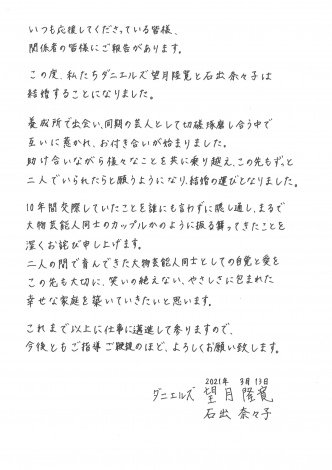 いつも応援してくださっている皆様、
関係者の皆様にご報告があります。
この度、私たちダニエルズ望月隆寛と石出奈々子は
結婚することになりました。
養成所で出会い、同期の芸人として切磋琢磨し合う中で
互いに惹かれ、お付き合いが始まりました。
助け合いながら様々なことを共に乗り越え、この先もずっと
二人でいられたらと願うようになり、結婚の運びとなりました。
10年間交際していたことを誰にも言わずに隠し通し、まるで
大物芸能人同士のカップルかのように振る舞ってきたことを
深くお詫び申し上げます。
二人の間で育んできた大物芸能人同士としての自覚と愛を
この先も大切に、笑いの絶えない、やさしさに包まれた
幸せな家庭を築いていきたいと思います。
これまで以上に仕事に邁進して参りますので、
今後ともご指導ご鞭撻のほど、よろしくお願い致します。
2021年 3月13日
ダニエルズ 望月隆寛
石出奈々子